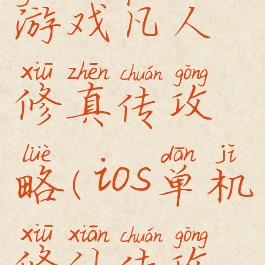 游戏凡人
xiū zhēn chuán gōng
修真传攻
lüè dān jī
略(ios单机
xiū xiān chuán gōng
修仙传攻